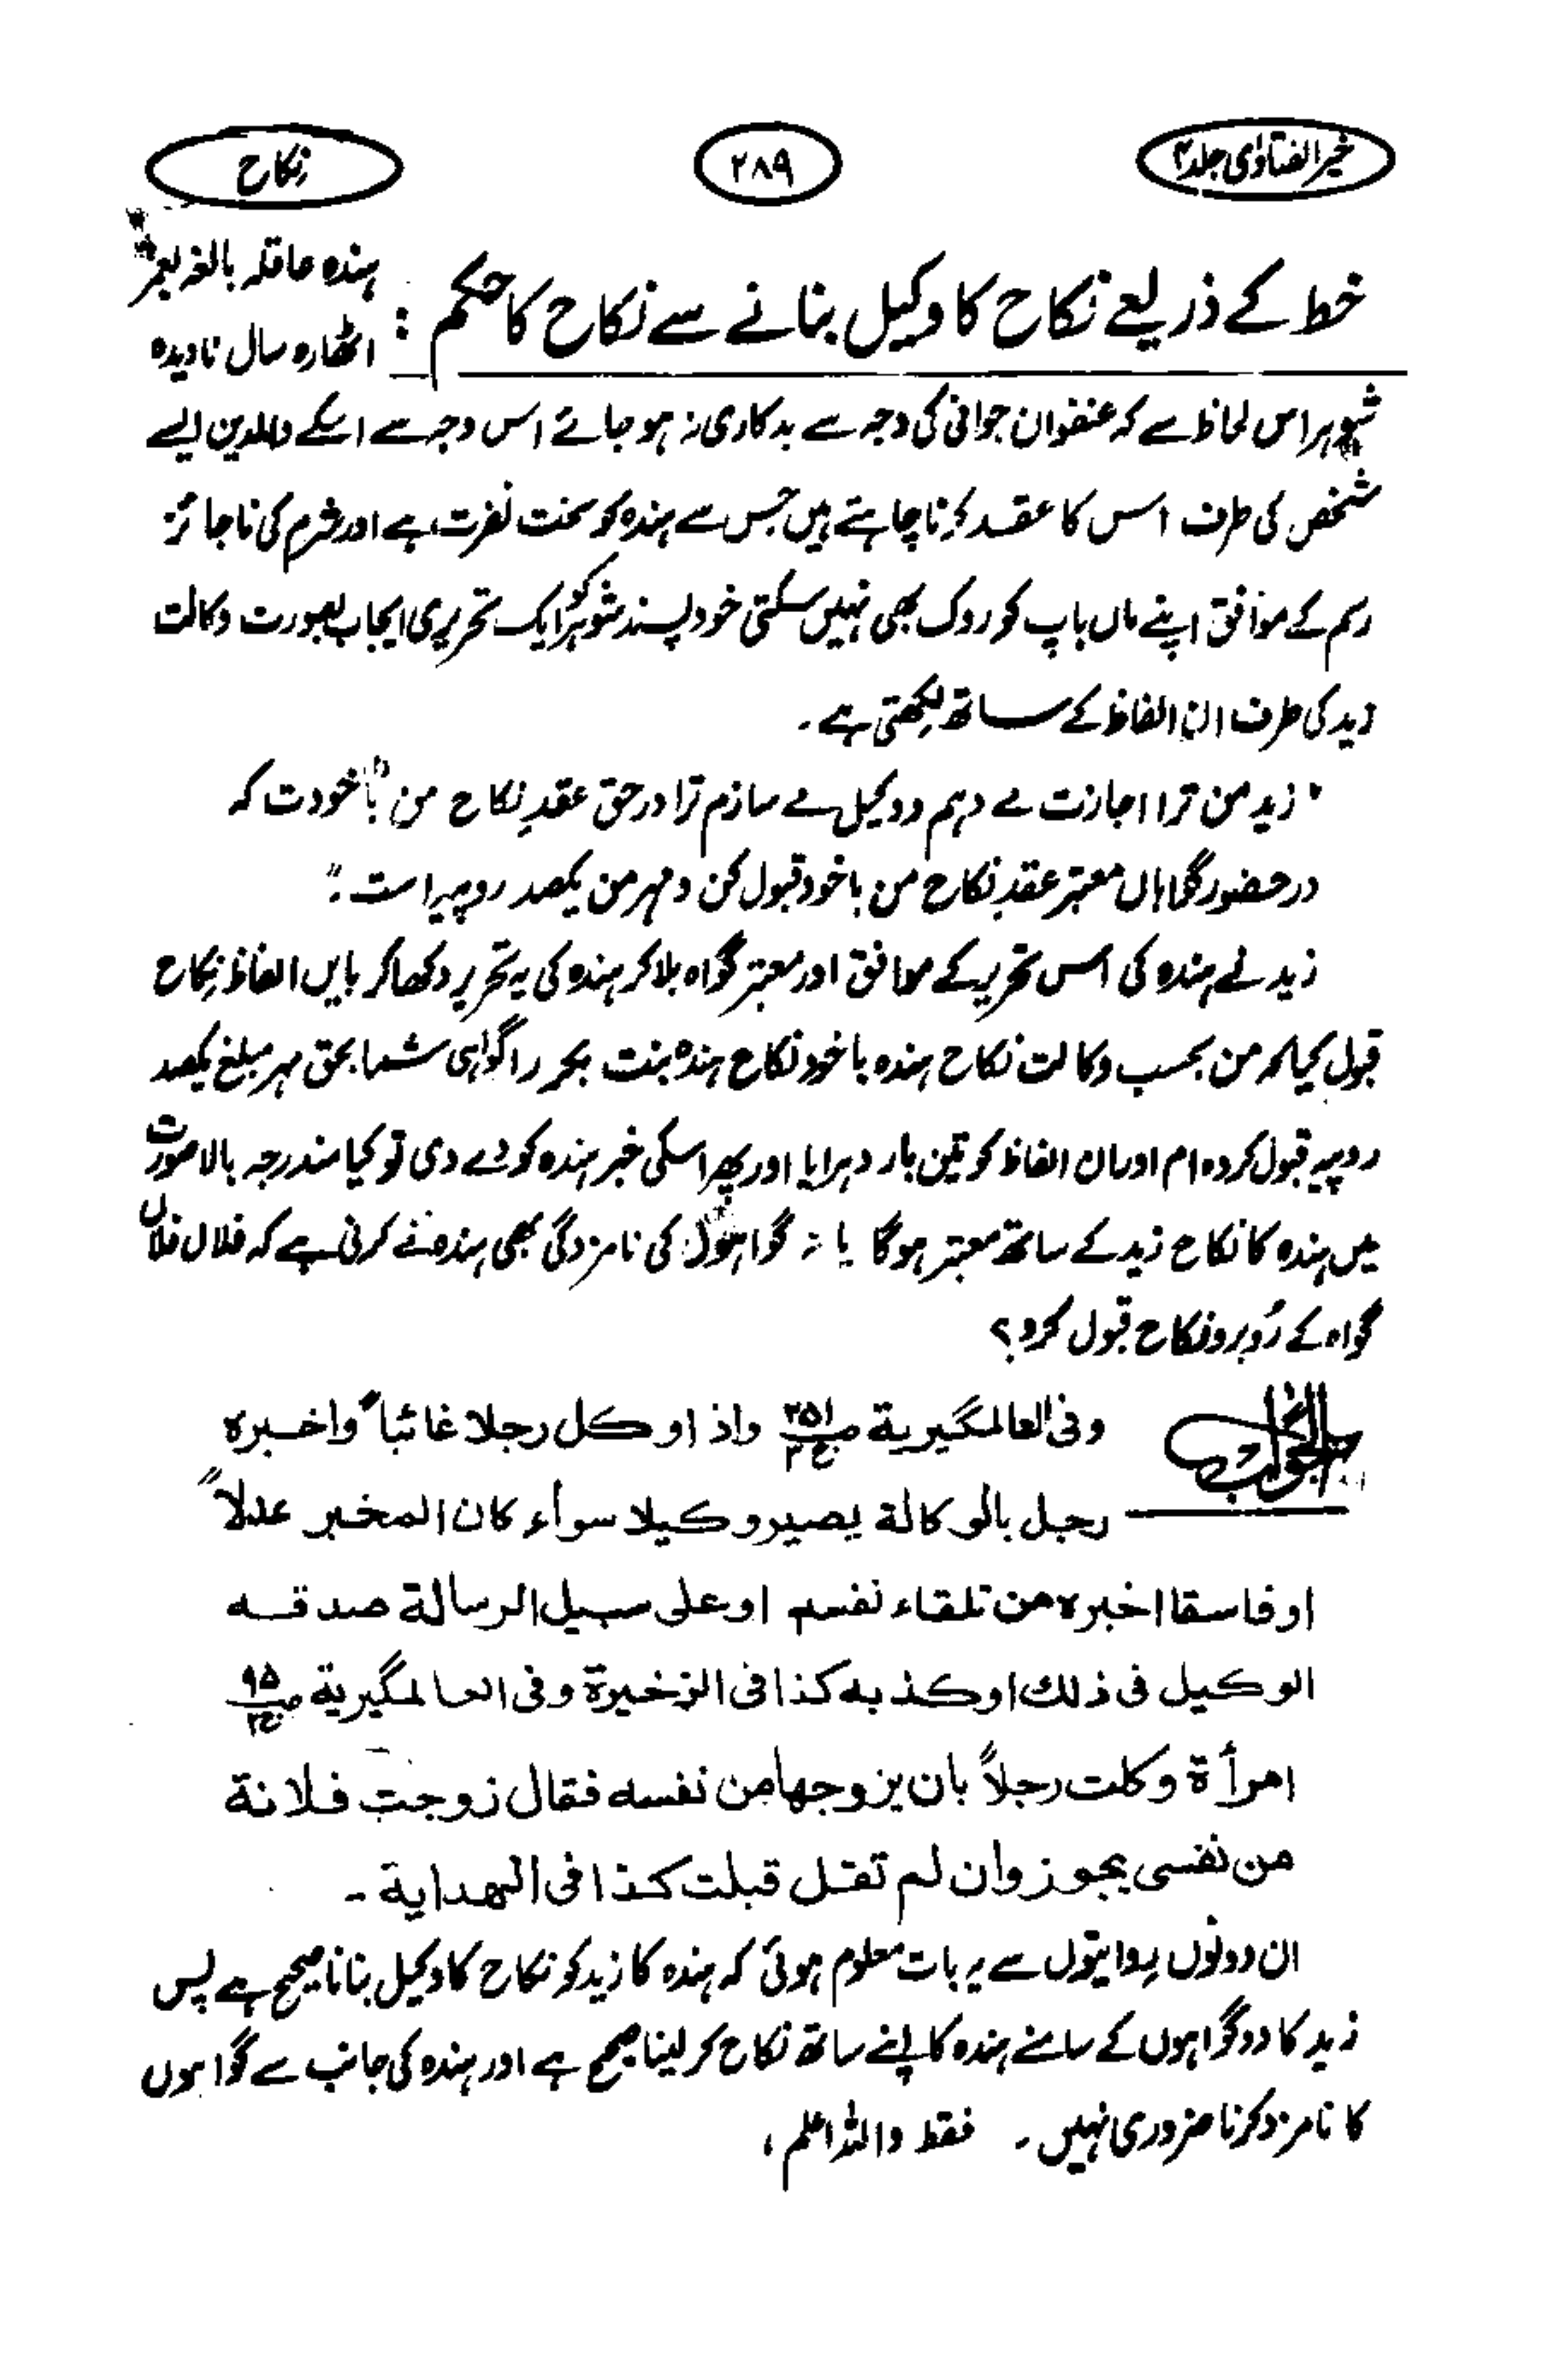 خیر الفتاوٰی جلد ۴
۲۸۹
نکاح
خط کے ذریعے نکاح کا وکیل بنانے سے نکاح کا حکم :
ہندہ عاقلہ بالغہ بعمر
اٹھارہ سال نادیدہ
شوہر اس لحاظ سے کہ عنفوان جوانی کی وجہ سے بدکاری نہ ہو جائے اس وجہ سے اسکے والدین ایسے
شخص کی طرف اس کا عقد کرنا چاہتے ہیں جس سے ہندہ کو سخت نفرت ہے اور شرم کی ناجائز
رسم کے موافق اپنے ماں باپ کو روک بھی نہیں سکتی خود پسند شوہر کو ایک تحریری ایجاب بصورت وکالت
زید کی طرف ان الفاظ کے ساتھ لکھتی ہے ۔
" زید من ترا اجازت مے دہم و وکیل مے سازم ترا در حق عقدِ نکاح من با خودت کہ
در حضور گواہاں معتبر عقدِ نکاح من با خود قبول کن و مہر من یکصد روپیہ است ۔"
زید نے ہندہ کی اس تحریر کے موافق اور معتبر گواہ بلا کر ہندہ کی یہ تحریر دکھا کر بایں الفاظ نکاح
قبول کیا کہ من بحسب وکالت نکاح ہندہ با خود نکاح ہندہ بنت بکر را گواہی شما بحق مہر مبلغ یکصد
روپیہ قبول کردہ ام اور ان الفاظ کو تین بار دہرایا اور پھر اسکی خبر ہندہ کو دے دی تو کیا مندرجہ بالا صورت
میں ہندہ کا نکاح زید کے ساتھ معتبر ہوگا یا نہ گواہوں کی نامزدگی بھی ہندہ نے کرنی ہے کہ فلاں فلاں
گواہ کے رُوبرو نکاح قبول کرو ؟
الجواب
وفی العالمگیریة ص۳۵۱ ج۳ واذا وکل رجلا غائبا واخبرہ
رجل بالوکالة یصیر وکیلا سواء کان المخبر عدلاً
او فاسقا اخبرہ من تلقاء نفسہ او علی سبیل الرسالة صدقہ
الوکیل فی ذلك او کذبہ کذا فی الذخیرة وفی العالمگیریة ص۹۵ ج۲
امرأة وکلت رجلاً بان یزوجها من نفسه فقال زوجت فلانة
من نفسی یجوز وان لم تقل قبلت کذا فی الهدایة ۔
ان دونوں روایتوں سے یہ بات معلوم ہوئی کہ ہندہ کا زید کو نکاح کا وکیل بنانا صحیح ہے پس
زید کا دو گواہوں کے سامنے ہندہ کا اپنے ساتھ نکاح کر لینا صحیح ہے اور ہندہ کی جانب سے گواہوں
کا نامزد کرنا ضروری نہیں ۔ فقط واللہ اعلم ،